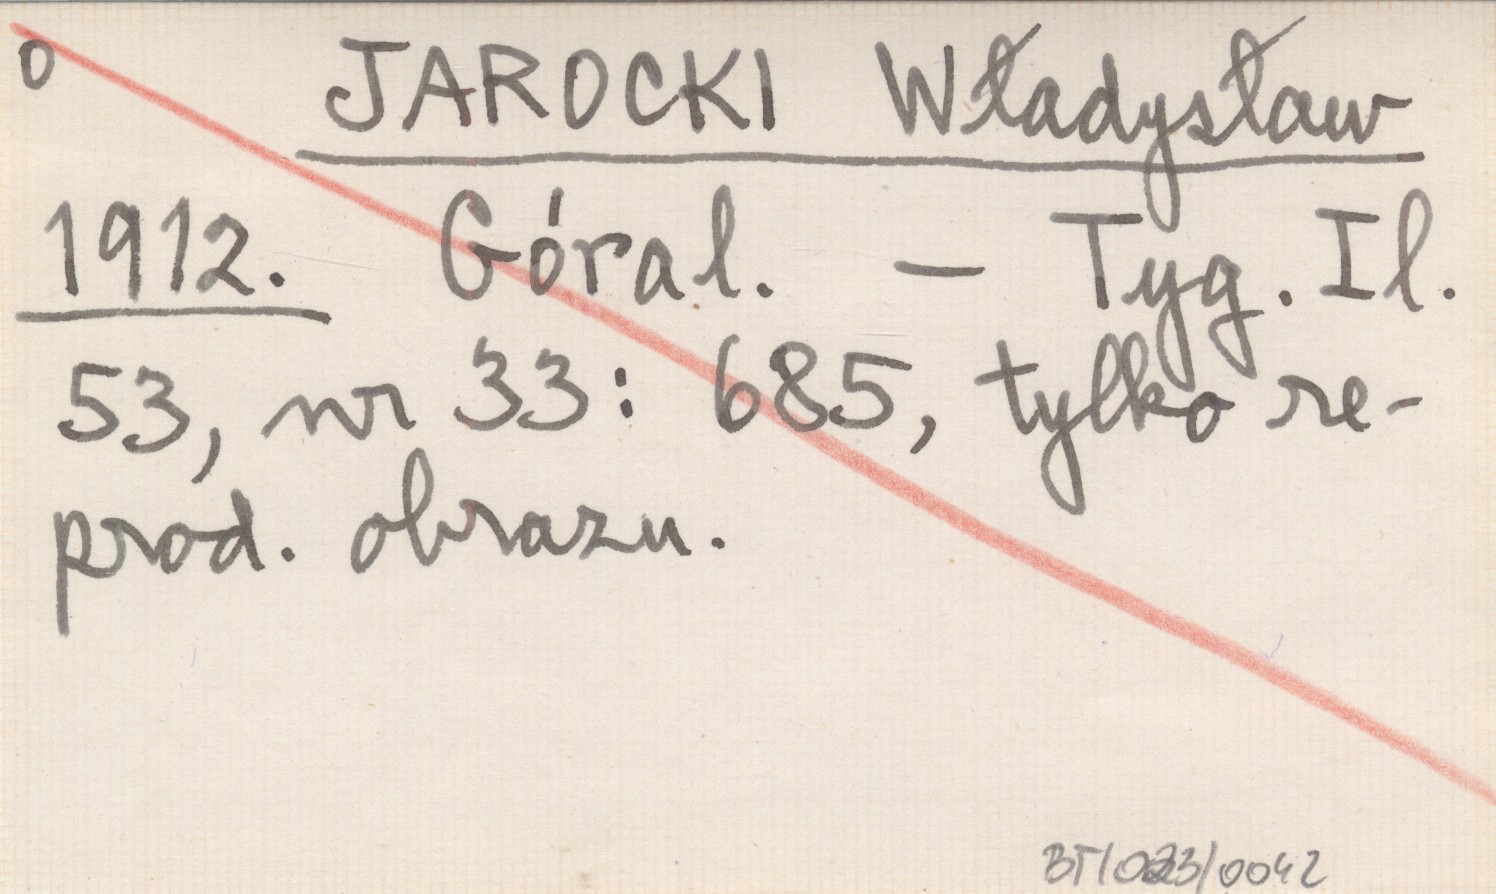 0 JAROCKI Władysław
1912. Góral. – Tyg. Il.
53, nr 33: 685, tylko re-
prod. obrazu.
BT/023/0042